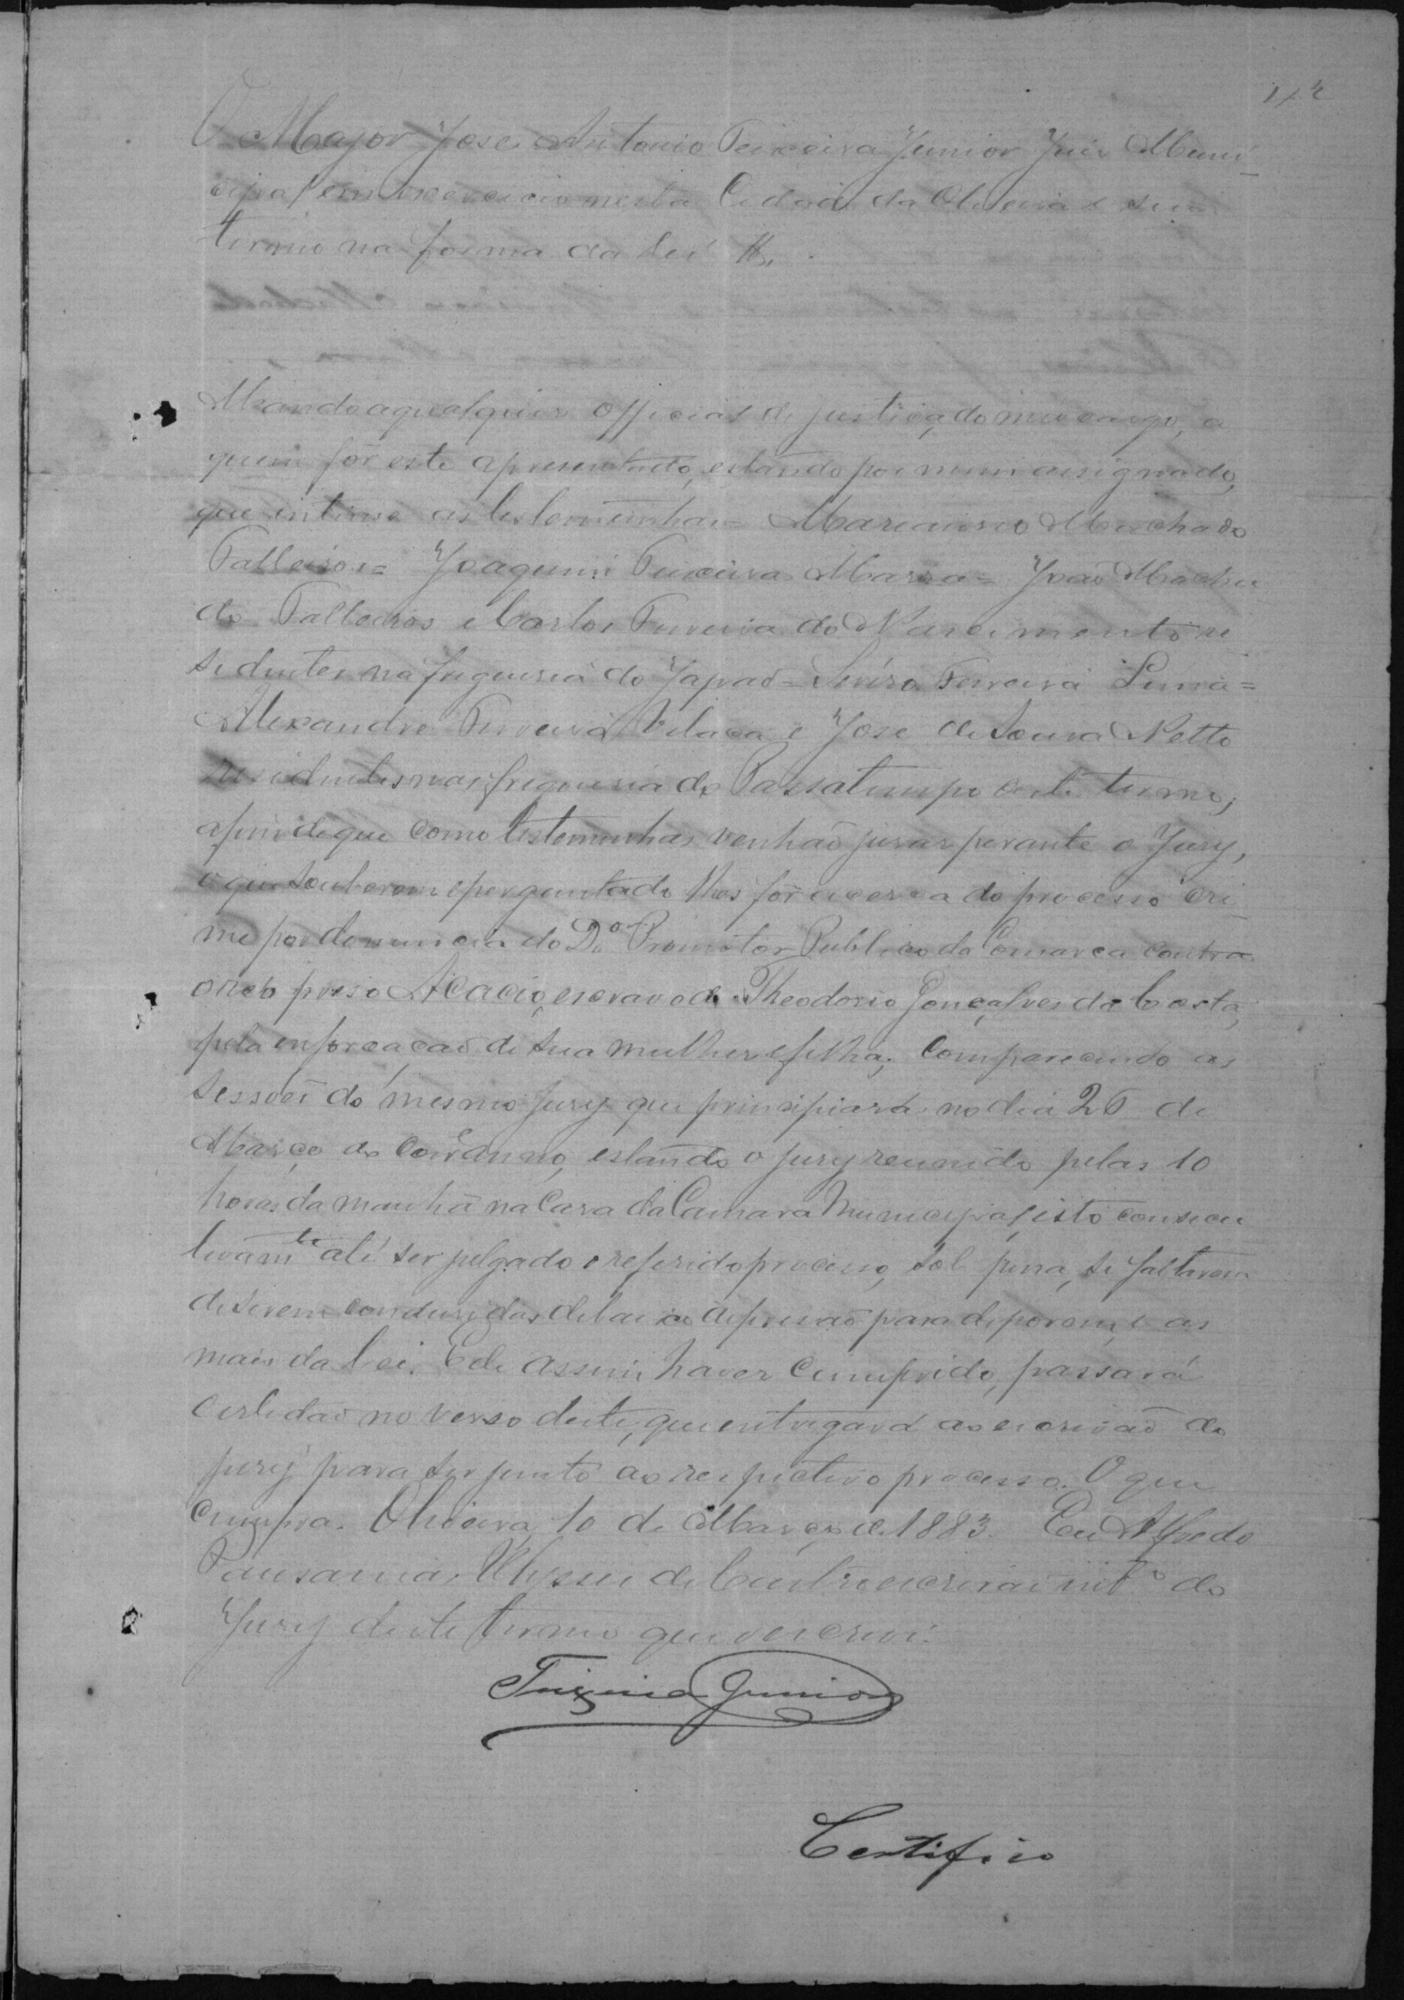 O Major Jose Antonio Teixeira Junior Juiz Muni-
cipal em exercicio nesta Cidade da Oliveira e seu
termo na forma da Lei &.
Mando a qualquer officiaes de justiça do meu cargo, a
quem fôr este apresentado, estando por mim assignado,
que intime as testemunhas = Marcianno Machado
Palleiros = Joaquim Ferreira Marra = João Macha
do Palleiros e Carlos Ferreira do Nascimento re
sidentes na freguesia do Japaõ = Ferreira Lima =
Alexandre Ferreira Vilaca e Jose de Sousa Netto
residentes na freguesia do Passatempo deste termo;
afim de que como testemunhas venhaõ jurar perante o Jury,
o que souberem e perguntado lhes fôr acerca do processo cri-
me por denuncia do D.or Promotor Publico da Comarca contra
o réo preso Acacio, escravo de Theodorio Gonçalves da Costa,
pela enforcaçaõ de sua mulher e filha; comparecendo as
sessoẽs do mesmo Jury que principiará no dia 26 de
Março do corre anno, estando o jury reunido pelas 10
horas da manhã na Casa da Camara Municipal, isto consecu
tivamte até ser julgado o referido processo, sob pena, se faltarem
de serem condusidas debaixo de prisaõ para deporem, e as
mais da Lei. E de assim haver cumprido, passará
certidaõ no verso deste, que entregará ao escrivaõ do
jury para ser junto ao respectivo processo. O que
cumpra. Oliveira, 10 de Março de 1883. Eu Alfredo
Pausanias Ulysses de Castro escrivaõ intº do
Jury deste termo que o escrevi.
Teixeira Junior
Certifico